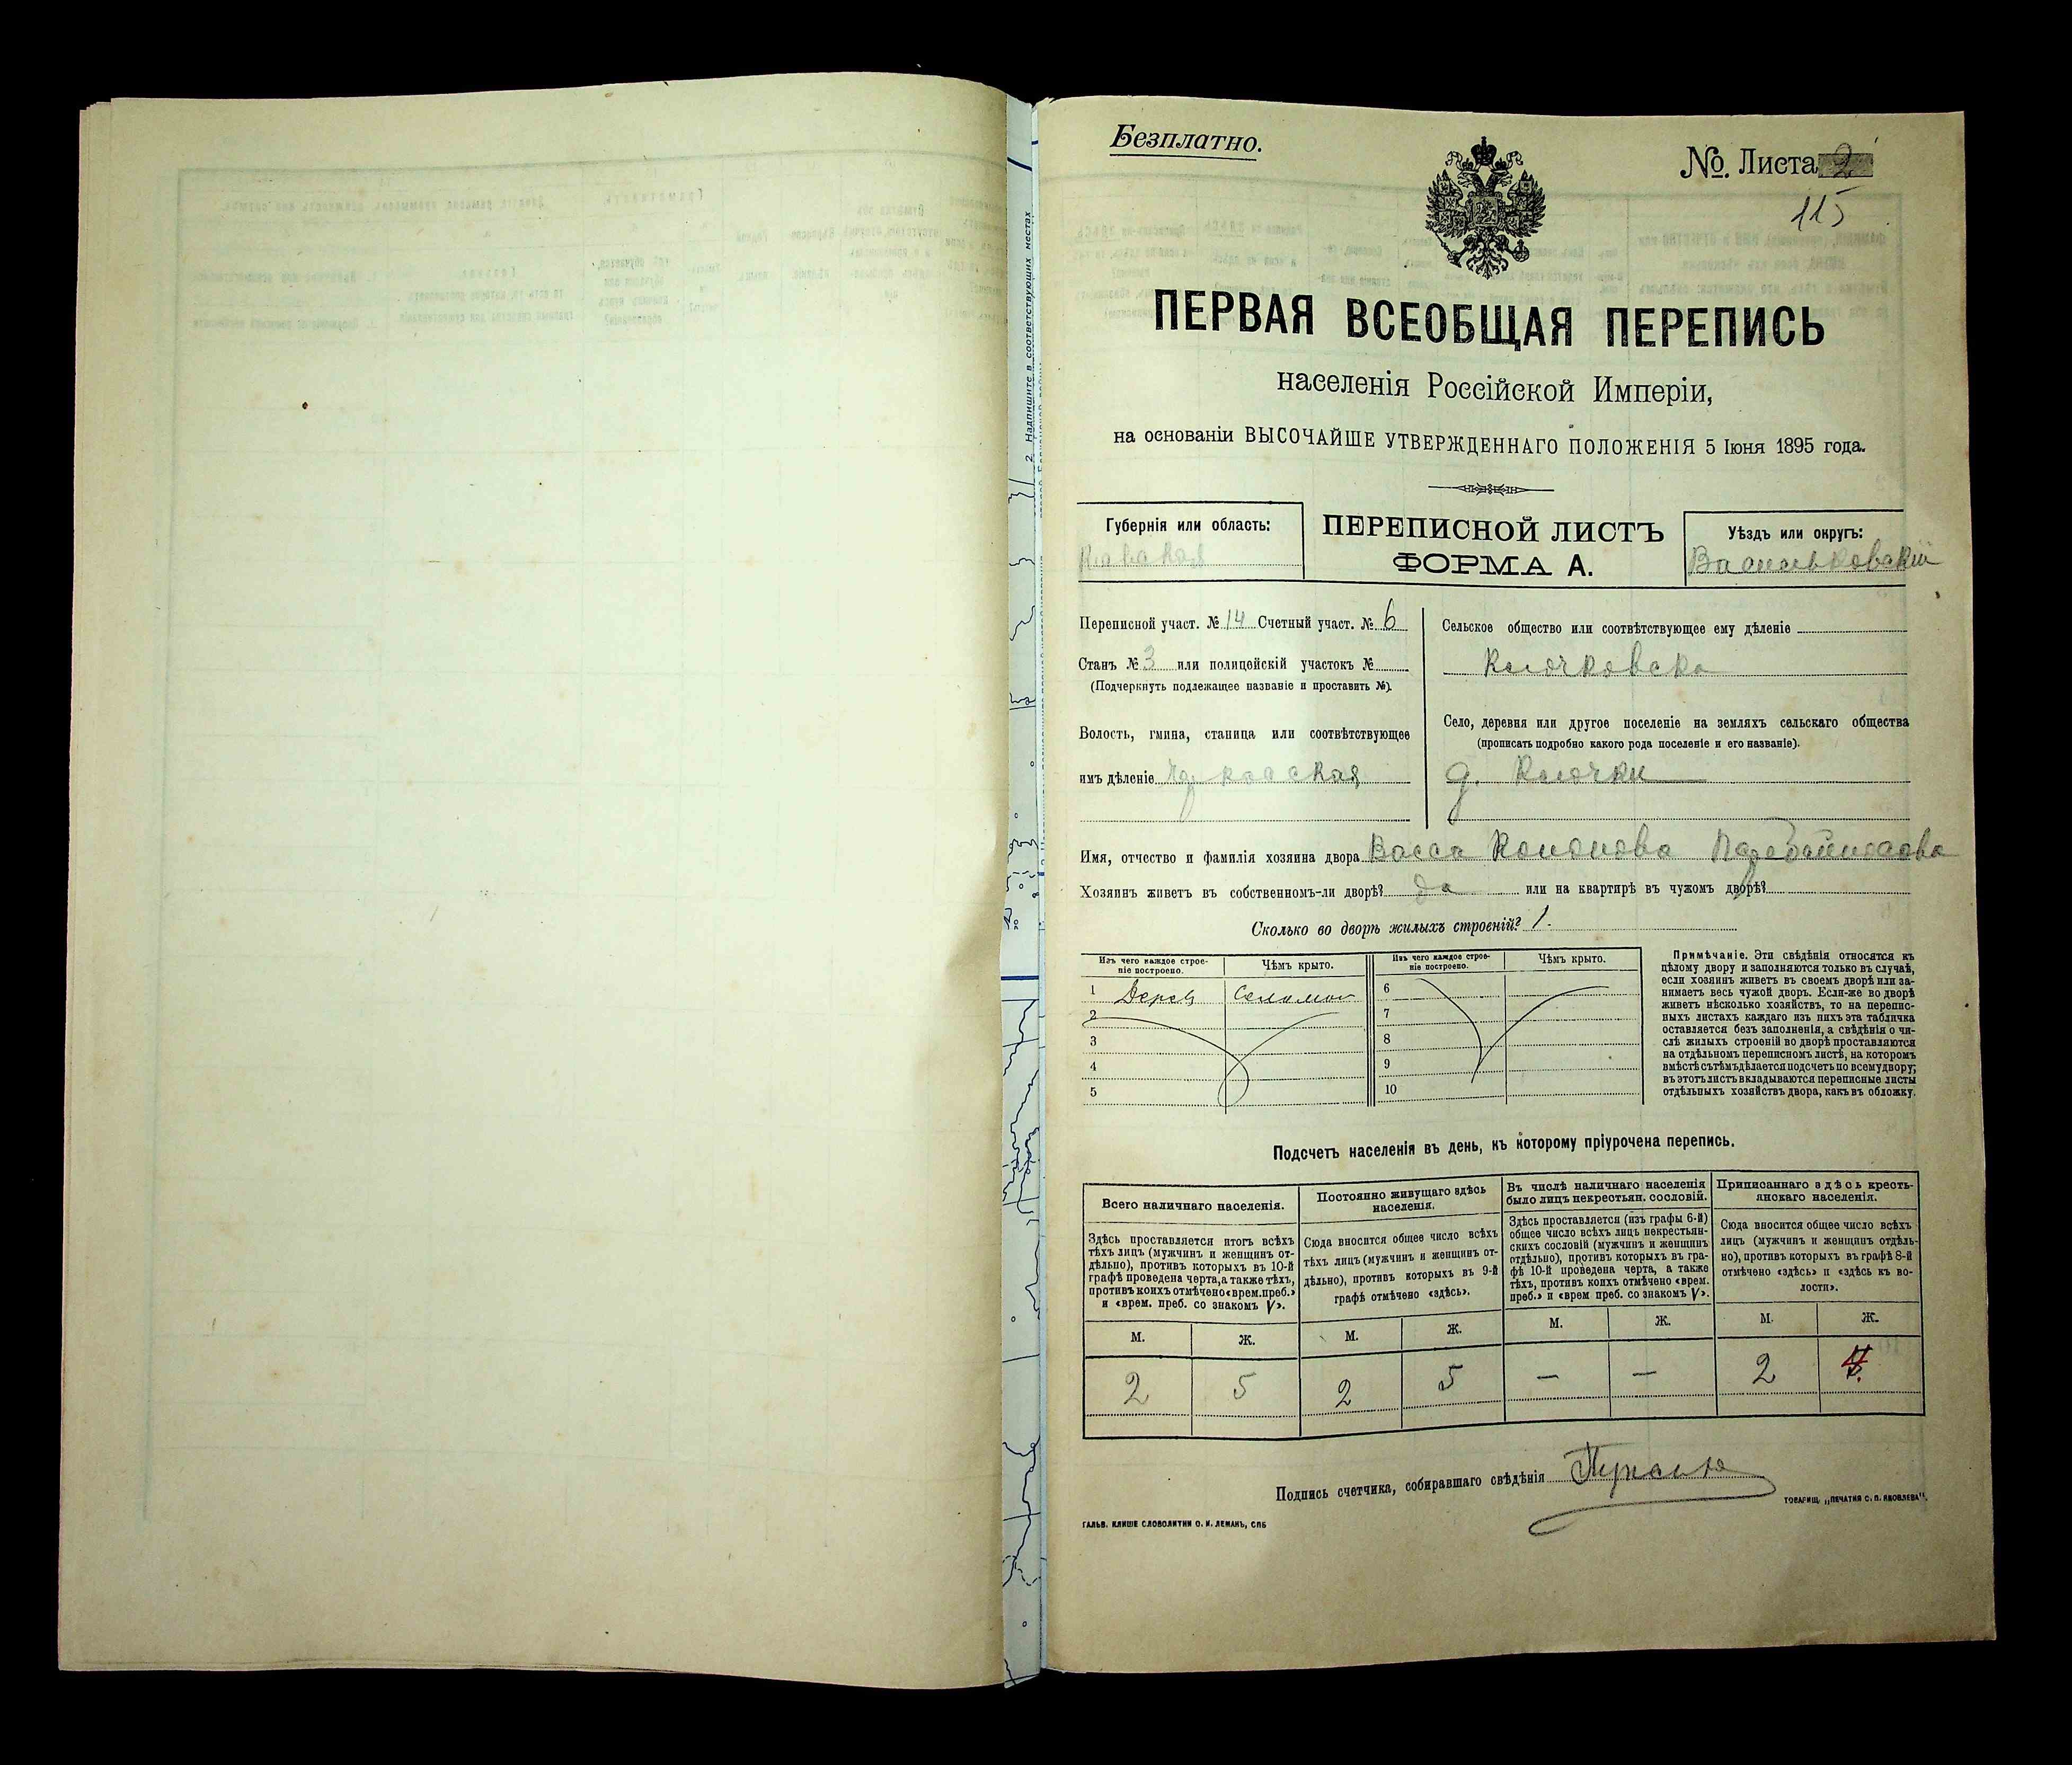 Безплатно.
№ Листа 2
115
ПЕРВАЯ ВСЕОБЩАЯ ПЕРЕПИСЬ
населенія Россійской Имперіи,
на основаніи ВЫСОЧАЙШЕ УТВЕРЖДЕННАГО ПОЛОЖЕНІЯ 5 Іюня 1895 года.
Губернія или область:
ПЕРЕПИСНОЙ ЛИСТЪ
ФОРМА А.
Уѣздъ или округъ:
Васильковскій
Переписной участ. № 14 Счетный участ. № 6
Станъ № 3 или полицейскій участокъ №
(Подчеркнуть подлежащее названіе и проставить №).
Волость, гмина, станица или соотвѣтствующее
имъ дѣленіе
Сельское общество или соотвѣтствующее ему дѣленіе
Село, деревня или другое поселеніе на земляхъ сельскаго общества
(прописать подробно какого рода поселеніе и его названіе).
д. Клочки
Имя, отчество и фамилія хозяина двора Васса Кононова
Хозяинъ живетъ въ собственномъ-ли дворѣ? да или на квартирѣ въ чужомъ дворѣ?
Сколько во дворѣ жилыхъ строеній? 1.
Изъ чего каждое строе-
ніе построено.
Чѣмъ крыто.
Изъ чего каждое строе-
ніе построено.
Чѣмъ крыто.
1 Дерев Солом
2
3
4
5
6
7
8
9
10
Примѣчаніе. Эти свѣдѣнія относятся къ
цѣлому двору и заполняются только въ случаѣ,
если хозяинъ живетъ въ своемъ дворѣ или за-
нимаетъ весь чужой дворъ. Если-же во дворѣ
живетъ нѣсколько хозяйствъ, то на перепис-
ныхъ листахъ каждаго изъ нихъ эта табличка
оставляется безъ заполненія, а свѣдѣнія о чи-
слѣ жилыхъ строеній во дворѣ проставляются
на отдѣльномъ переписномъ листѣ, на которомъ
вмѣстѣ съ тѣмъ дѣлается подсчетъ по всему двору;
въ этотъ листъ вкладываются переписные листы
отдѣльныхъ хозяйствъ двора, какъ въ обложку.
Подсчетъ населенія въ день, къ которому пріурочена перепись.
Всего наличнаго населенія.
Здѣсь проставляется итогъ всѣхъ
тѣхъ лицъ (мужчинъ и женщинъ от-
дѣльно), противъ которыхъ въ 10-й
графѣ проведена черта, а также тѣхъ,
противъ коихъ отмѣчено «врем. преб.»
и «врем. преб. со знакомъ V».
Постоянно живущаго здѣсь
населенія.
Сюда вносится общее число всѣхъ
тѣхъ лицъ (мужчинъ и женщинъ от-
дѣльно), противъ которыхъ въ 9-й
графѣ отмѣчено «здѣсь».
Въ числѣ наличнаго населенія
было лицъ некрестьян. сословій.
Здѣсь проставляется (изъ графы 6-й)
общее число всѣхъ лицъ некрестьян-
скихъ сословій (мужчинъ и женщинъ
отдѣльно), противъ которыхъ въ гра-
фѣ 10-й проведена черта, а также
тѣхъ, противъ коихъ отмѣчено «врем.
преб.» и «врем преб. со знакомъ V».
Приписаннаго здѣсь кресть-
янскаго населенія.
Сюда вносится общее число всѣхъ
лицъ (мужчинъ и женщинъ отдѣль-
но), противъ которыхъ въ графѣ 8-й
отмѣчено «здѣсь» и «здѣсь къ во-
лости».
М. Ж. М. Ж. М. Ж. М. Ж.
2 5 2 5 — — 2
Подпись счетчика, собиравшаго свѣдѣнія
ТОВАРИЩ. „ПЕЧАТНЯ С. П. ЯКОВЛЕВА".
ГАЛЬВ. КЛИШЕ СЛОВОЛИТНИ О. И. ЛЕМАНЪ, СПБ
2. Надпишите в соответствующих местах